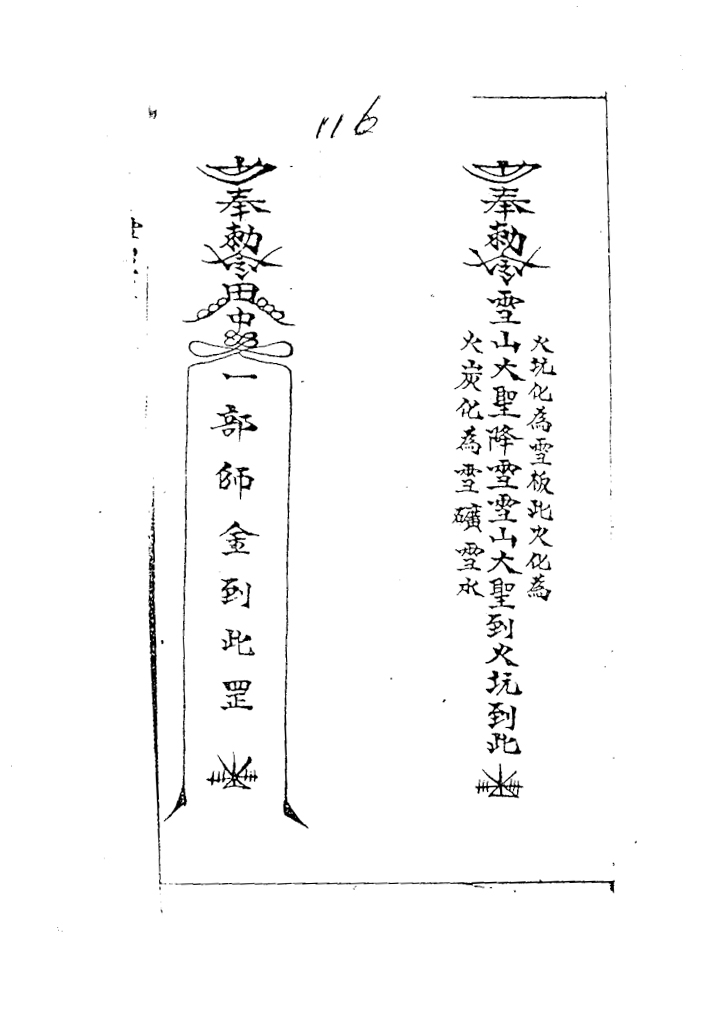 116
奉勅令雪山大聖降雪雪山大聖到火坑到此
火坑化為雪板此火化為
火炭化為雪礦雪水
奉勅令田中
一部師金到此罡